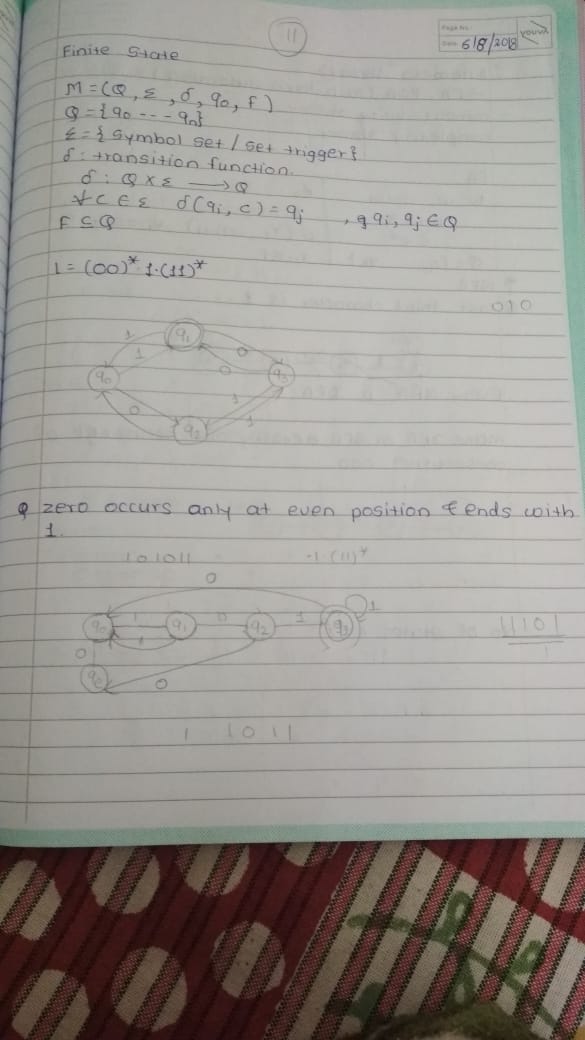 11
Page No.:
Date: 6/8/2018
youva
Finite State
M = (Q, Σ, δ, q0, F)
Q = {q0 --- qn}
Σ = { Symbol set / set trigger}
δ : transition function.
δ : Q × Σ → Q
∀ C ∈ Σ δ(qi, c) = qj , qi, qj ∈ Q
F ⊆ Q
L = (00)* 1.(11)*
010
1
q1
1
0
q0
0
q3
0
1
q2
1
Q zero occurs only at even position & ends with
1.
101011
.1.(11)*
0
1
q0
1
q1
0
q2
1
q3
11101
1
1
0
0
1 1011